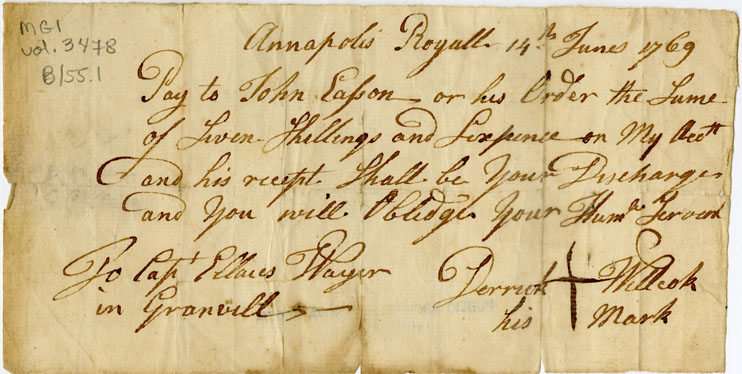 MG1
vol. 3478
B/55.1
Annapolis Royall 14th Junes 1769
Pay to John Easson or his Order the Sume
of Seven Shillings and Sixpence on My Acctt
and his recept Shall be Your Discharge
and You will Obledge Your Humle Servent
To Capt Ellaes Wayer
in Granvill
Derrick Willcok
his Mark